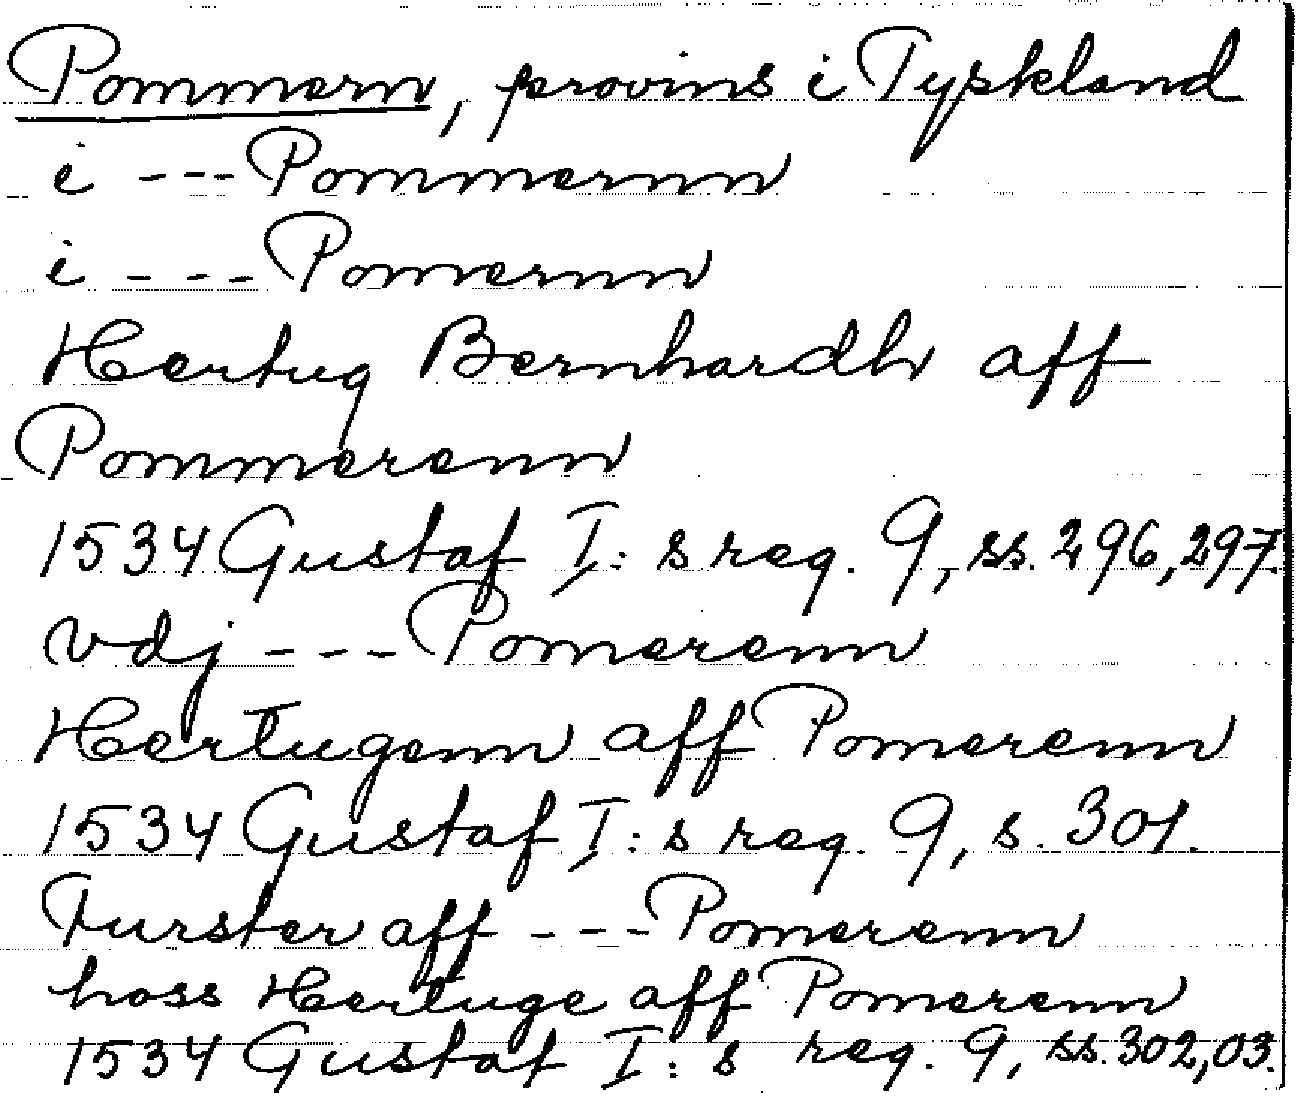 Pommern, provins i Tyskland
i --- Pommernn
i --- Pomernn
Hertug Bernhardh aff
Pommerenn
1534 Gustaf I:s reg. 9, ss. 296, 297.
vdj --- Pomerenn
Hertugenn aff Pomerenn
1534 Gustaf I:s reg. 9, s. 301.
Furster aff --- Pomerenn
hoss Hertuge aff Pomerenn
1534 Gustaf I:s reg. 9, ss. 302, 03.